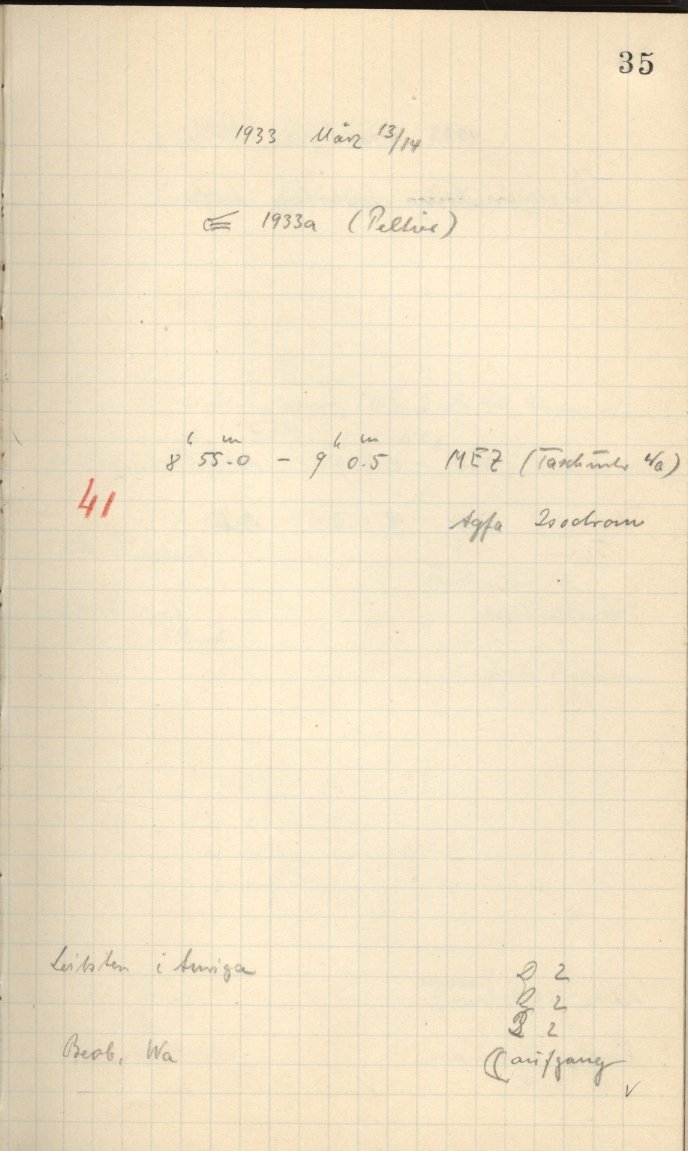 35
1933 März 13/14
☄ 1933a (Peltier)
8h 55m.0 – 9h 0m.5 MEZ (Taschenuhr Wa)
41
Agfa Isochrom
Leitstern i Auriga
D 2
R 2
B 2
Beob. Wa
☾aufgang